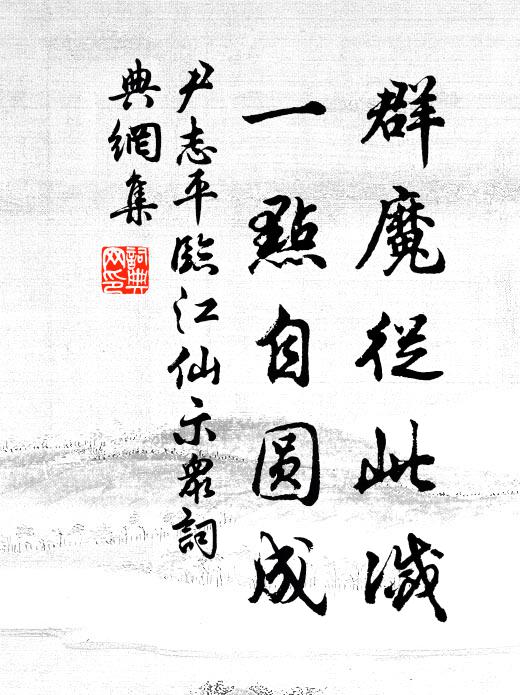 群魔從此滅
一點自圓成
尹志平臨江仙示眾詞
典網集
詞典
网印